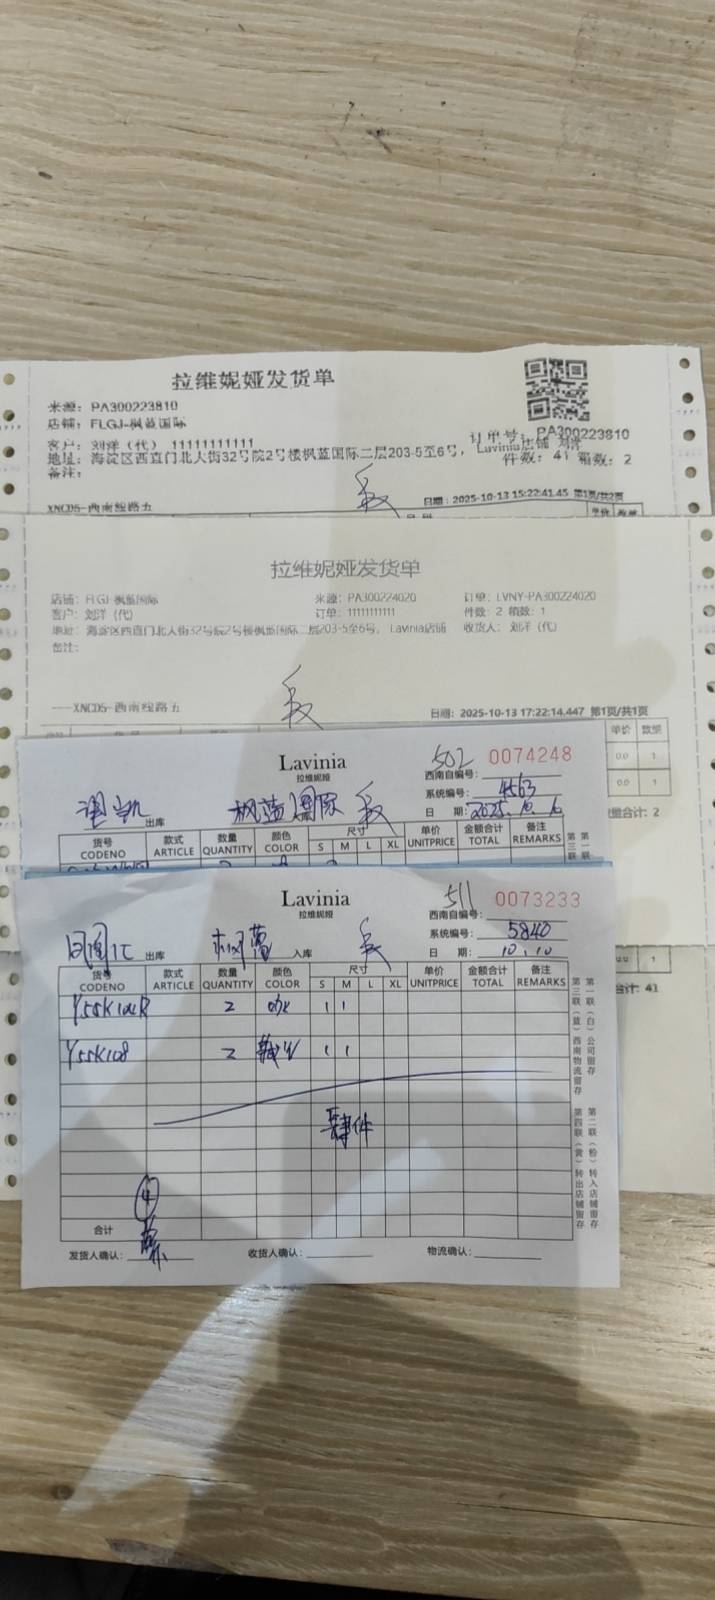 拉维妮娅发货单
来源：PA300223810
店铺：FLGJ-枫蓝国际
订单号：PA300223810
客户：刘洋（代） 11111111111
Lavinia店铺 刘洋
地址：海淀区西直门北大街32号院2号楼枫蓝国际二层203-5至6号，
件数：41 箱数：2
备注：
XNCDS-西南线路五
日期：2025-10-13 15:22:41.45 第1页/共2页
单价 数量
拉维妮娅发货单
店铺：FLGJ-枫蓝国际 来源：PA300224020 订单：LVNY-PA300224020
客户：刘洋（代） 订单：11111111111 件数：2 箱数：1
地址：海淀区西直门北大街32号院2号楼枫蓝国际二层203-5至6号， Lavinia店铺 收货人：刘洋（代）
备注：
XNCDS-西南线路五
日期：2025-10-13 17:22:14.447 第1页/共1页
单价 数量
0.0 1
0.0 1
数量合计：2
Lavinia
拉维妮娅
502 0074248
西南自编号：
系统编号：4563
出库 枫蓝国际 入库
日 期：2025.10.
货号 款式 数量 颜色 尺寸 单价 金额合计 备注
CODENO ARTICLE QUANTITY COLOR S M L XL UNITPRICE TOTAL REMARKS
Lavinia
拉维妮娅
511 0073233
西南自编号：
系统编号：5840
出库 枫蓝 入库
日 期：10.10
货号 款式 数量 颜色 尺寸 单价 金额合计 备注
CODENO ARTICLE QUANTITY COLOR S M L XL UNITPRICE TOTAL REMARKS
2 1 1
Y55K108 2 1 1
肆件
4
合计
发货人确认： 收货人确认： 物流确认：
第一联（白）公司留存
第二联（粉）转入店铺留存
第三联（蓝）西南物流留存
第四联（黄）转出店铺留存
0.0 1
合计：41